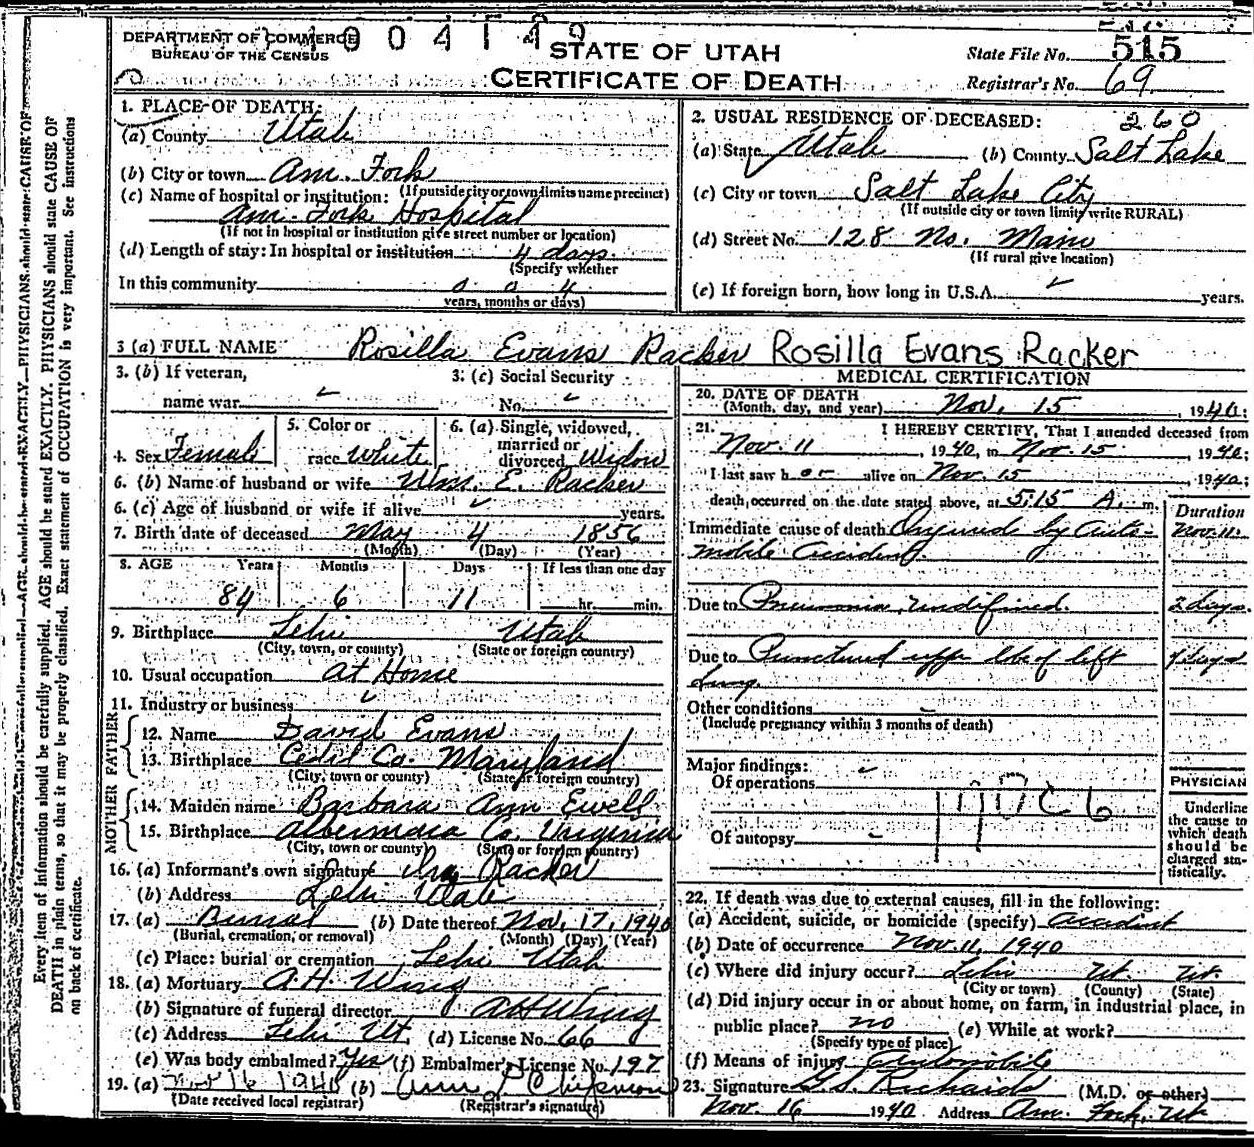 Every item of information should be carefully supplied. AGE should be stated EXACTLY. PHYSICIANS should state CAUSE OF
DEATH in plain terms, so that it may be properly classified. Exact statement of OCCUPATION is very important. See instructions
on back of certificate.
DEPARTMENT OF COMMERCE
BUREAU OF THE CENSUS
STATE OF UTAH
CERTIFICATE OF DEATH
State File No. 515
Registrar's No. 69.
1. PLACE OF DEATH:
(a) County Utah
(b) City or town Am. Fork
(If outside city or town limits name precinct)
(c) Name of hospital or institution:
Am. Fork Hospital
(If not in hospital or institution give street number or location)
(d) Length of stay: In hospital or institution 4 days.
(Specify whether
In this community 0 0 4
years, months or days)
2. USUAL RESIDENCE OF DECEASED: 260
(a) State Utah (b) County Salt Lake
(c) City or town Salt Lake City
(If outside city or town limits write RURAL)
(d) Street No. 128 No. Main
(If rural give location)
(e) If foreign born, how long in U.S.A. years.
3 (a) FULL NAME Rosilla Evans Racker Rosilla Evans Racker
3. (b) If veteran,
name war
3. (c) Social Security
No.
4. Sex Female
5. Color or
race White
6. (a) Single, widowed,
married or
divorced Widow
6. (b) Name of husband or wife Wm. E. Racker
6. (c) Age of husband or wife if alive years.
7. Birth date of deceased May 4 1856
(Month) (Day) (Year)
8. AGE Years Months Days If less than one day
84 6 11 hr. min.
9. Birthplace Lehi Utah
(City, town, or county) (State or foreign country)
10. Usual occupation At Home
11. Industry or business
FATHER
12. Name David Evans
13. Birthplace Cecil Co. Maryland
(City, town or county) (State or foreign country)
MOTHER
14. Maiden name Barbara Ann Ewell
15. Birthplace Co. Virginia
(City, town or county) (State or foreign country)
16. (a) Informant's own signature Ira Racker
(b) Address Lehi Utah
17. (a) Burial (b) Date thereof Nov. 17, 1940
(Burial, cremation, or removal) (Month) (Day), (Year)
(c) Place: burial or cremation Lehi Utah
18. (a) Mortuary A.H. Wing
(b) Signature of funeral director AH Wing
(c) Address Lehi Ut. (d) License No. 66
(e) Was body embalmed? Yes (f) Embalmer's License No. 197
19. (a) Nov 16 1940 (b) Chipman
(Date received local registrar) (Registrar's signature)
MEDICAL CERTIFICATION
20. DATE OF DEATH
(Month, day, and year) Nov. 15, 1940;
21. I HEREBY CERTIFY, That I attended deceased from
Nov. 11, 1940, to Nov. 15, 1940;
I last saw her alive on Nov. 15, 1940;
death occurred on the date stated above, at 5:15 A. m.
Duration
Immediate cause of death Injured by Auto- Nov. 11.
mobile Accident.
Due to Pneumonia, undifined. 2 days.
Due to Punctured upp lbe of left
Lung. days
Other conditions
(Include pregnancy within 3 months of death)
Major findings:
Of operations
Of autopsy
170C6
PHYSICIAN
Underline
the cause to
which death
should be
charged sta-
tistically.
22. If death was due to external causes, fill in the following:
(a) Accident, suicide, or homicide (specify) Accident
(b) Date of occurrence Nov. 11, 1940
(c) Where did injury occur? Lehi Ut Ut.
(City or town) (County) (State)
(d) Did injury occur in or about home, on farm, in industrial place, in
public place? no (e) While at work?
(Specify type of place)
(f) Means of injury Automobile
23. Signature Richards (M.D. or other)
Nov. 16 1940 Address Am. Fork, Ut